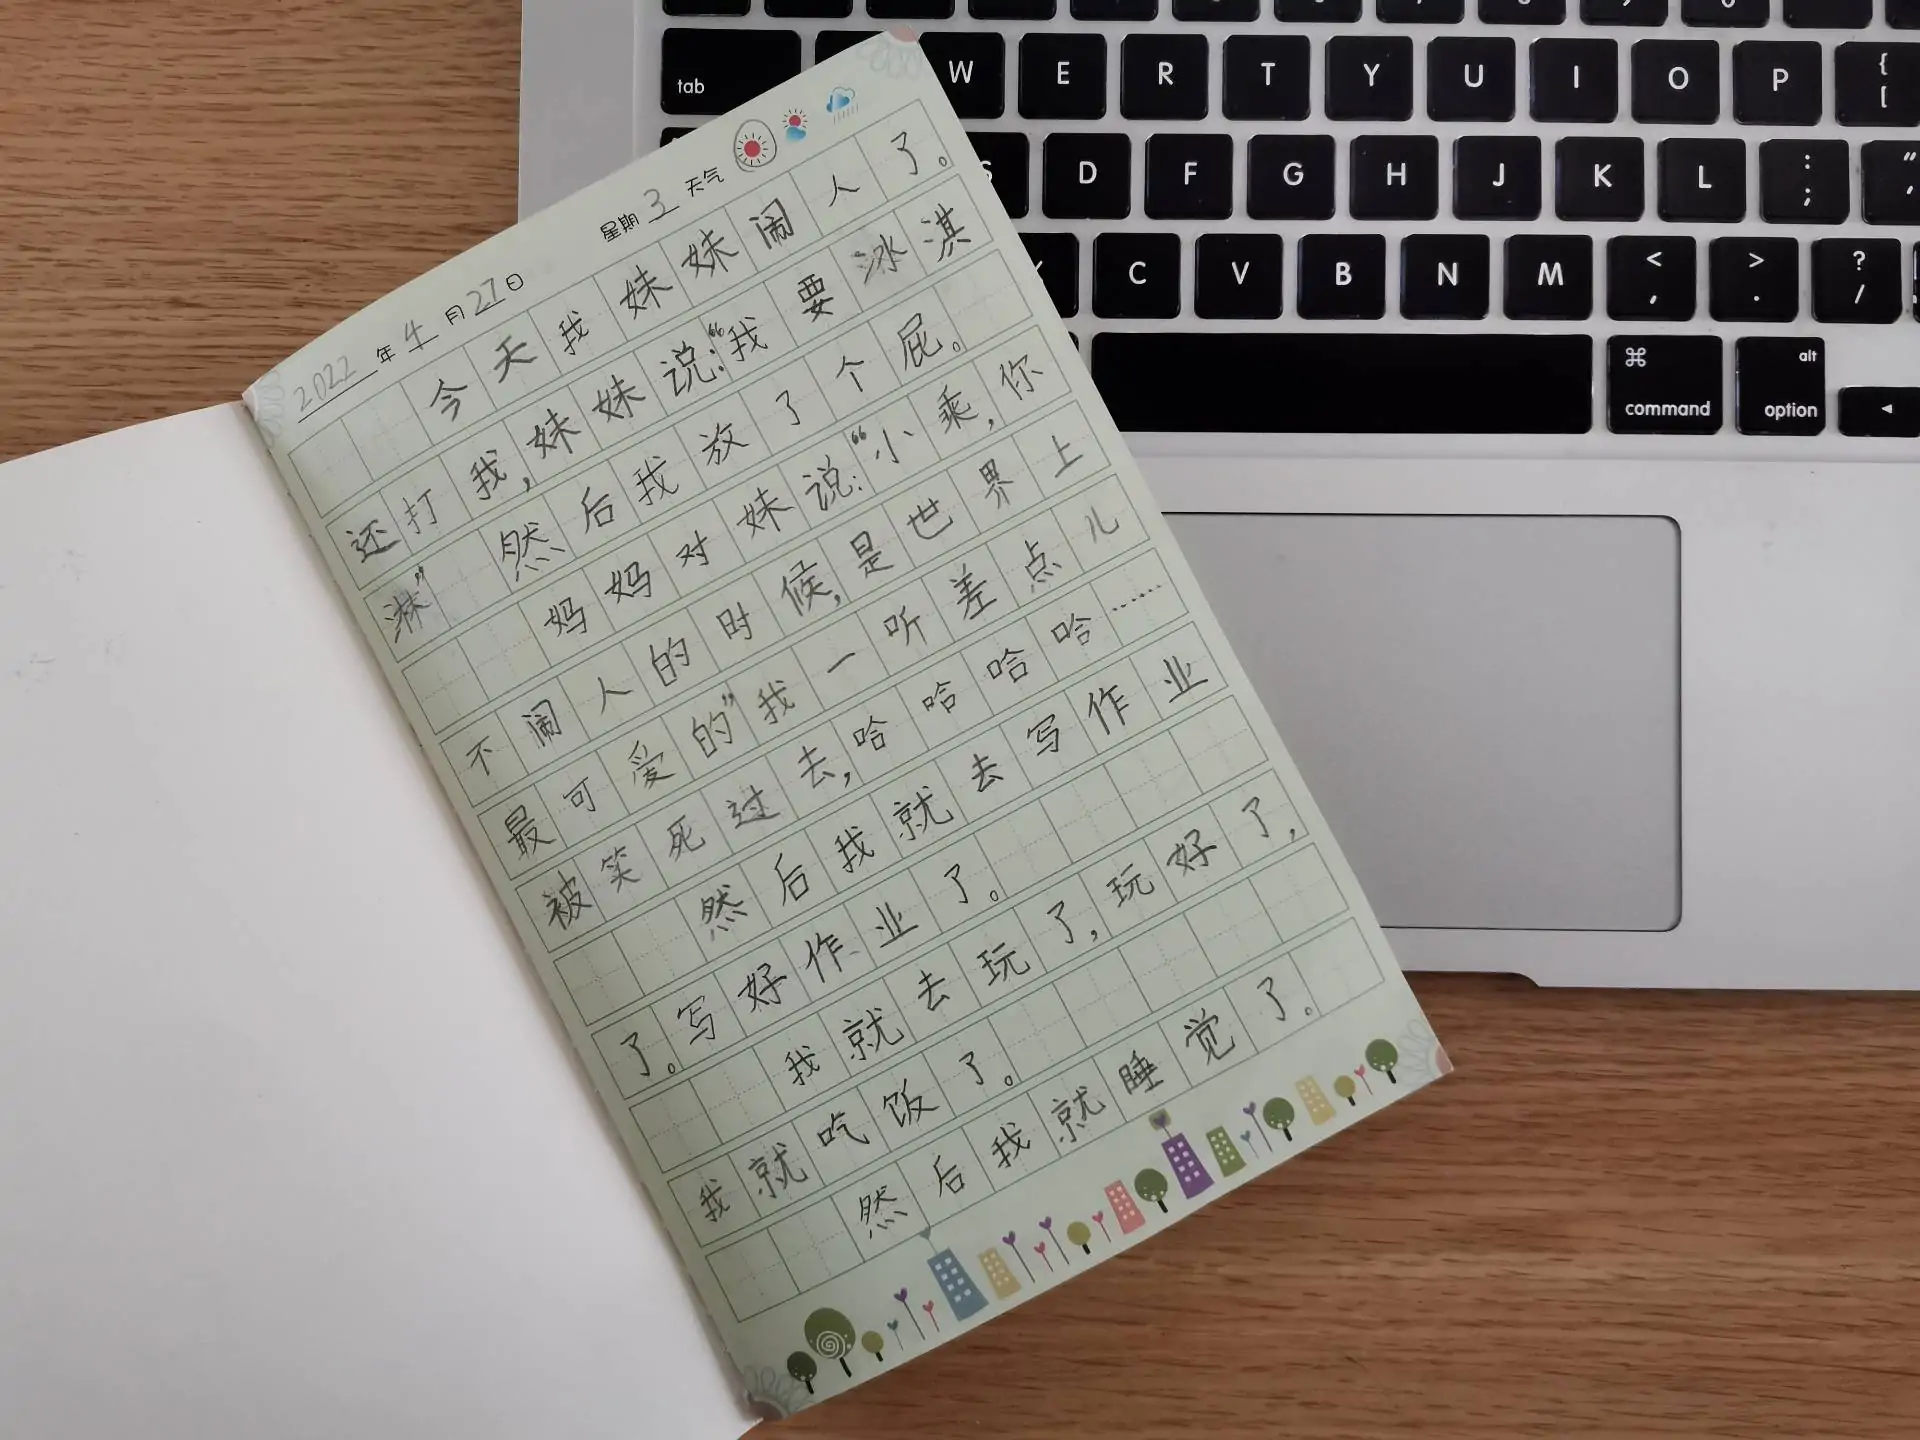 2022年4月27日 星期3 天气
今天我妹妹闹人了。
还打我,妹妹说:“我要冰淇
淋” 然后我放了个屁。
妈妈对妹说:“小乘,你
不闹人的时候,是世界上
最可爱的”我一听差点儿
被笑死过去,哈哈哈哈……
然后我就去写作业
了。写好作业了。
我就去玩了,玩好了,
我就吃饭了。
然后我就睡觉了。
tab W E R T Y U I O P { [
S D F G H J K L : ; " '
C V B N M < , > . ? /
⌘ command alt option ◄